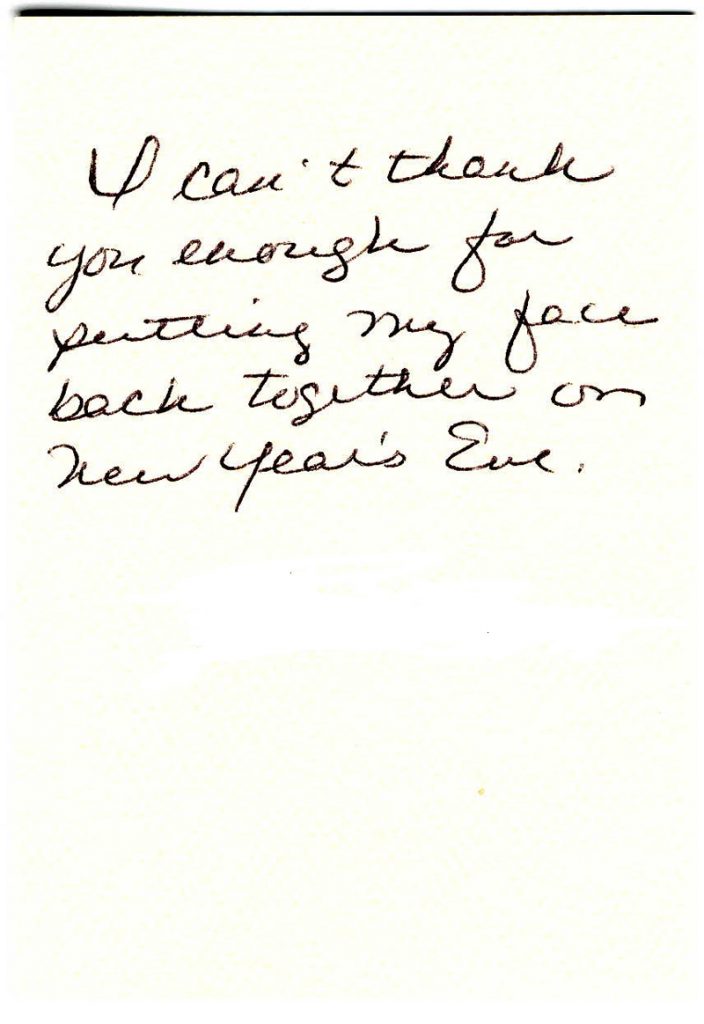 I can't thank
you enough for
putting my face
back together on
New Year's Eve.